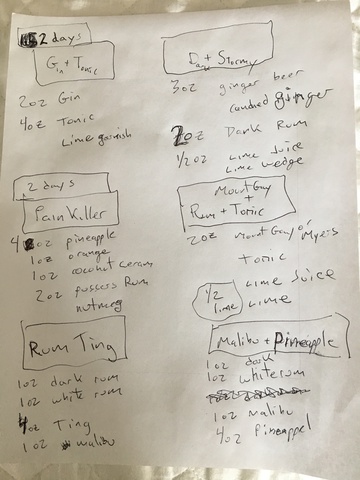 2 days
Gin + Tonic
2oz Gin
4oz Tonic
Lime garnish
Dark + Stormy
3oz ginger beer
candied ginger
2oz Dark Rum
1/2oz Lime Juice
Lime wedge
2 days
Pain Killer
4oz pineapple
1oz orange
1oz coconut cream
2oz pussers Rum
nutmeg
Mount Gay
+
Rum + Tonic
2oz Mount Gay or Myers
Tonic
Lime Juice
1/2 lime Lime
Rum Ting
1oz dark rum
1oz white rum
4oz Ting
1oz malibu
Malibu + Pineapple
1oz dark
1oz white rum
1oz Malibu
4oz Pineappel